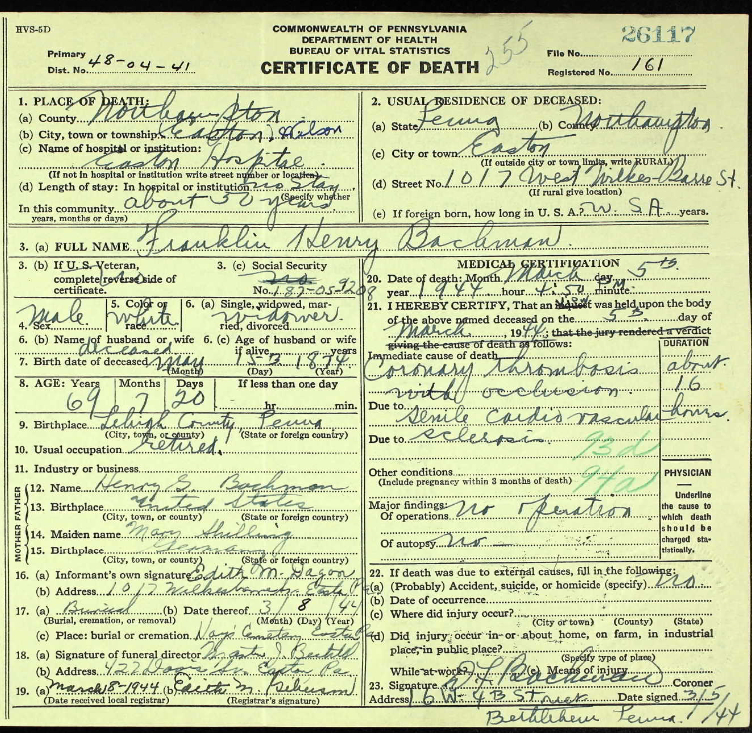 HVS-5D
COMMONWEALTH OF PENNSYLVANIA
DEPARTMENT OF HEALTH
BUREAU OF VITAL STATISTICS
CERTIFICATE OF DEATH
255
26117
Primary
Dist. No. 48-04-41
File No.
Registered No. 161
1. PLACE OF DEATH:
(a) County Northampton
(b) City, town or township Easton,
(c) Name of hospital or institution:
Easton Hospital
(If not in hospital or institution write street number or location)
(d) Length of stay: In hospital or institution no stay
(Specify whether
In this community about 50 years
years, months or days)
2. USUAL RESIDENCE OF DECEASED:
(a) State Penna (b) County Northampton
(c) City or town Easton
(If outside city or town limits, write RURAL)
(d) Street No. 1017 West Wilkes-Barre St.
(If rural give location)
(e) If foreign born, how long in U. S. A.? years.
3. (a) FULL NAME Franklin Henry Bachman
3. (b) If U. S. Veteran,
complete reverse side of
certificate. no
3. (c) Social Security
No. 187-05-9208
4. Sex Male
5. Color or
race White
6. (a) Single, widowed, mar-
ried, divorced widower
6. (b) Name of husband or wife
deceased
6. (c) Age of husband or wife
if alive years
7. Birth date of deceased May 15
(Month) (Day) (Year)
8. AGE: Years Months Days If less than one day
69 20 hr. min.
9. Birthplace Lehigh County, Penna
(City, town, or county) (State or foreign country)
10. Usual occupation retired
11. Industry or business
FATHER
12. Name Henry G. Bachman
13. Birthplace United States
(City, town, or county) (State or foreign country)
MOTHER
14. Maiden name
15. Birthplace Germany
(City, town, or county) (State or foreign country)
16. (a) Informant's own signature Edith M.
(b) Address 1017
17. (a) Burial (b) Date thereof 3/8/44
(Burial, cremation, or removal) (Month) (Day) (Year)
(c) Place: burial or cremation Cemetery
18. (a) Signature of funeral director
(b) Address 427
19. (a) March 8-1944 (b) Edith M.
(Date received local registrar) (Registrar's signature)
MEDICAL CERTIFICATION
20. Date of death: Month March day 5th
year 1944 hour 4:50 minute
21. I HEREBY CERTIFY, That an was held upon the body
of the above named deceased on the 5th day of
March, 1944; that the jury rendered a verdict
giving the cause of death as follows:
DURATION
Immediate cause of death
Coronary thrombosis about
with occlusion 16
Due to Senile cardiovascular hours.
Due to sclerosis. 93d
94a
Other conditions
(Include pregnancy within 3 months of death)
Major findings:
Of operations no operation
Of autopsy no
PHYSICIAN
Underline
the cause to
which death
should be
charged sta-
tistically.
22. If death was due to external causes, fill in the following:
(a) (Probably) Accident, suicide, or homicide (specify) no
(b) Date of occurrence
(c) Where did injury occur?
(City or town) (County) (State)
(d) Did injury occur in or about home, on farm, in industrial
place, in public place?
(Specify type of place)
While at work? (e) Means of injury
23. Signature Bachman Coroner
Address 16 W 4th Street Date signed 3/5/44
Bethlehem Penna.